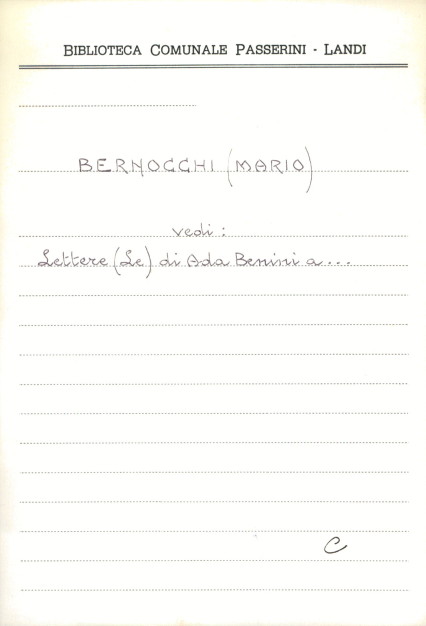 BIBLIOTECA COMUNALE PASSERINI - LANDI
BERNOCCHI (MARIO)
vedi:
Lettere (Le) di Ada Benini a...
C